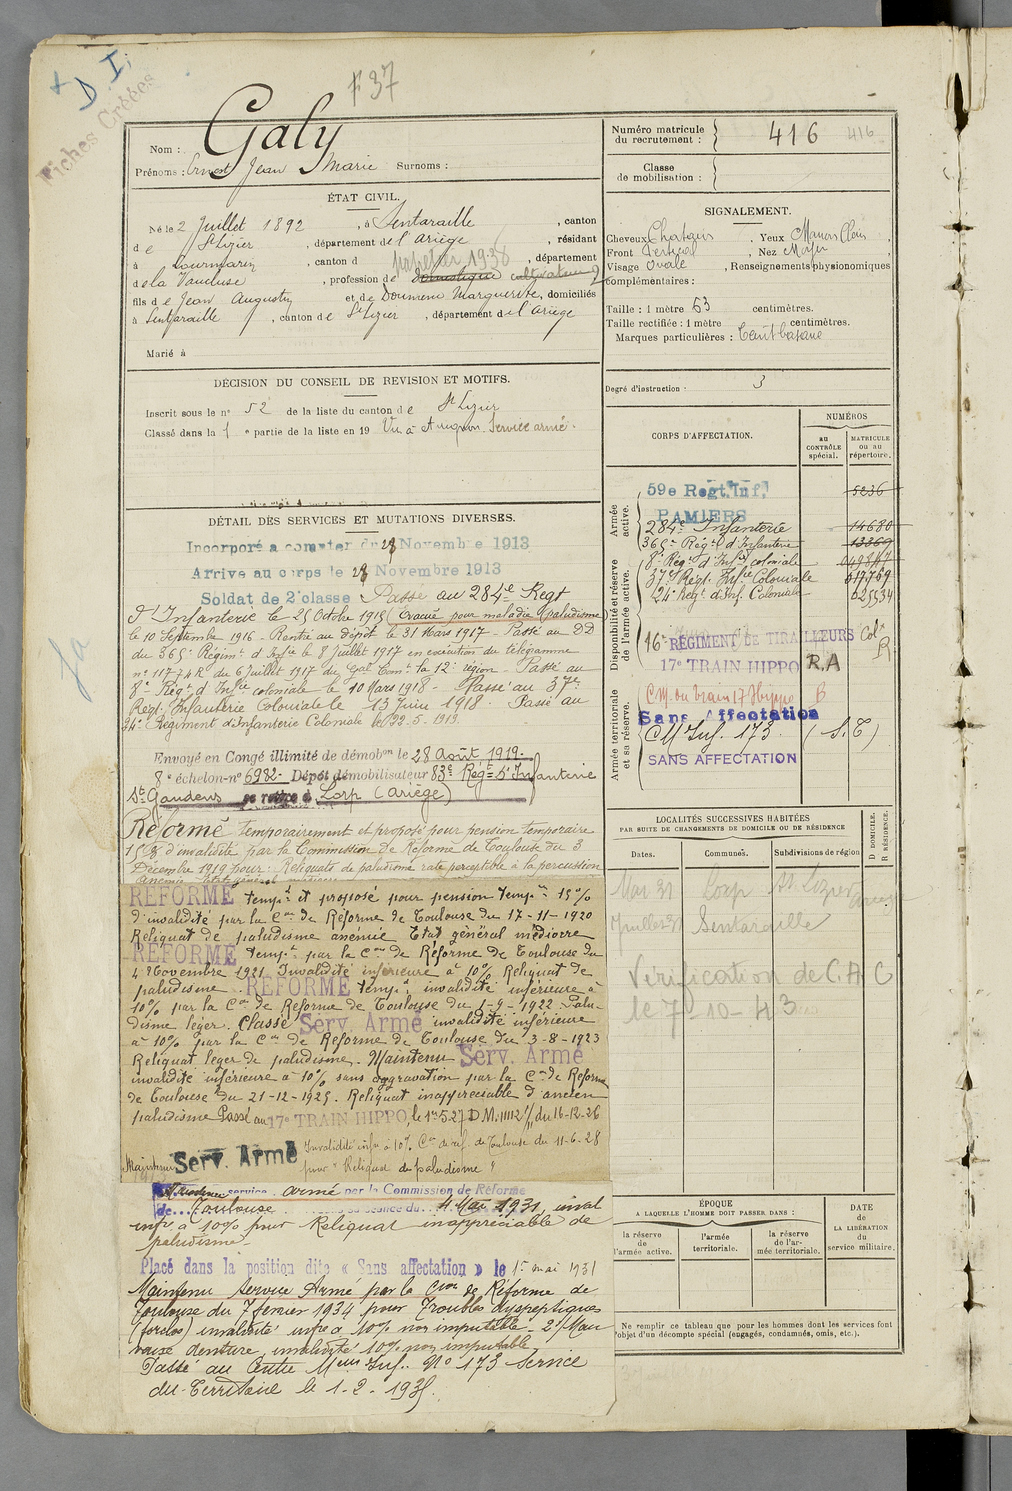 + D. I.
Fiches Créées
F 37
Galy
Nom :
Prénoms : Ernest Jean Marie Surnoms :
ÉTAT CIVIL.
Né le 2 Juillet 1892, à Sentaraille, canton
de St Lizier, département de l'Ariège, résidant
à Lourmarin, canton d papetier 1938, département
de la Vaucluse, profession de domestique cultivateur
fils de Jean Augustin et de Doumenc Marguerite, domiciliés
à Sentaraille, canton de St Lizier, département de l'Ariège
Marié à
DÉCISION DU CONSEIL DE REVISION ET MOTIFS.
Inscrit sous le n° 52 de la liste du canton de St Lizier
Classé dans la 1e partie de la liste en 19 Vu à Avignon. Service armé.
DÉTAIL DES SERVICES ET MUTATIONS DIVERSES.
Incorporé à compter du 28 Novembre 1913
Arrivé au corps le 28 Novembre 1913
Soldat de 2e classe Passé au 284e Regt
d'Infanterie le 25 Octobre 1915 (Evacué pour maladie (paludisme)
le 10 Septembre 1916 - Rentré au dépôt le 31 Mars 1917 - Passé au DD
du 365e Régimt d'Infie le 8 Juillet 1917 en exécution du télégramme
n° 11774 K du 6 Juillet 1917 du Gal Comt la 12e région - Passé au
8e Régt d'Infie coloniale le 10 Mars 1918 - Passé au 37e
Régt Infanterie Coloniale le 13 Juin 1918. Passé au
24e Régiment d'Infanterie Coloniale le 22-5-1919.
Envoyé en Congé illimité de démobon le 28 Août 1919.
8e échelon-n° 6982- Dépôt démobilisateur 83e Regt d'Infanterie
St Gaudens se retire à Lorp (Ariège)
Réformé temporairement et proposé pour pension temporaire
15% d'invalidité par la Commission de Réforme de Toulouse du 3
Décembre 1919 pour : Reliquats de paludisme rate perceptible à la percussion
RÉFORMÉ tempt et proposé pour pension tempre 15%
d'invalidité par la Con de Réforme de Toulouse du 17-11-1920
Reliquat de paludisme anémie Etat général médiocre
RÉFORMÉ tempt par la Con de Réforme de Toulouse du
4 Novembre 1921 Invalidité inférieure à 10% Reliquat de
paludisme. RÉFORMÉ tempt invalidité inférieure à
10% par la Con de Réforme de Toulouse du 1-9-1922 Palu-
disme léger. Classé Serv. Armé invalidité inférieure
à 10% par la Con de Réforme de Toulouse du 3-8-1923
Reliquat léger de paludisme. Maintenu Serv. Armé
invalidité inférieure à 10% sans aggravation par la Con de Réforme
de Toulouse du 21-12-1925. Reliquat inappréciable d'ancien
paludisme Passé au 17e TRAIN HIPPO, le 1er-5-27 D.M. 11112 1/11 du 16-12-26
Maintenu Serv. Armé Invalidité infre à 10% Con de réf. de Toulouse du 11-6-28
pour "Reliquat de paludisme"
Maintenu service armé par la Commission de Réforme
de Toulouse séance du 4 Mai 1931, inval
infre à 10% pour Reliquat inappréciable de
paludisme
Placé dans la position dite « Sans affectation » le 1er mai 1931
Maintenu service Armé par la Con de Réforme de
Toulouse du 7 février 1934 pour Troubles dyspeptiques
(forclos) invalidité infre à 10% non imputable - 2° Mau
vaise denture, invalidité 10% non imputable
Passé au Centre Meur Inf. N° 173 Service
du Territoire le 1-2-1935.
Numéro matricule du recrutement : 416 416
Classe de mobilisation :
SIGNALEMENT.
Cheveux Chatain, Yeux Marron Clair,
Front Vertical, Nez Moyen
Visage Ovale, Renseignements physionomiques
complémentaires :
Taille : 1 mètre 53 centimètres.
Taille rectifiée : 1 mètre centimètres.
Marques particulières : Teint basané
Degré d'instruction : 3
CORPS D'AFFECTATION.
NUMÉROS
au CONTRÔLE spécial.
MATRICULE ou au répertoire.
Armée active.
59e Regt. Inf. 5236
PAMIERS
284e Infanterie 14680
365e Régt d'Infanterie 13369
Disponibilité et réserve de l'armée active.
8e Régt d'Infie coloniale
37e Régt. Infie Coloniale 017769
24e Regt d'Inf. Coloniale 025534
16e RÉGIMENT DE TIRAILLEURS Colx
17e TRAIN HIPPO R.A R
Armée territoriale et sa réserve.
C.M. du train 17 Hippo B
Sans Affectation
CM Inf. 173 (S.T)
SANS AFFECTATION
LOCALITÉS SUCCESSIVES HABITÉES
PAR SUITE DE CHANGEMENTS DE DOMICILE OU DE RÉSIDENCE
D DOMICILE. R RÉSIDENCE.
Dates. Communes. Subdivisions de région
Mai 31 Lorp St Lizier Ariège
Juillet 31 Sentaraille
Vérification de C.A C
le 7-10-43
ÉPOQUE
A LAQUELLE L'HOMME DOIT PASSER DANS :
la réserve de l'armée active.
l'armée territoriale.
la réserve de l'armée territoriale.
DATE de LA LIBÉRATION du service militaire.
Ne remplir ce tableau que pour les hommes dont les services font
l'objet d'un décompte spécial (engagés, condamnés, omis, etc.).